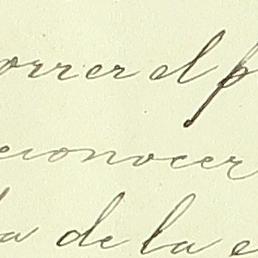 orrer el p
econocer
a de la e